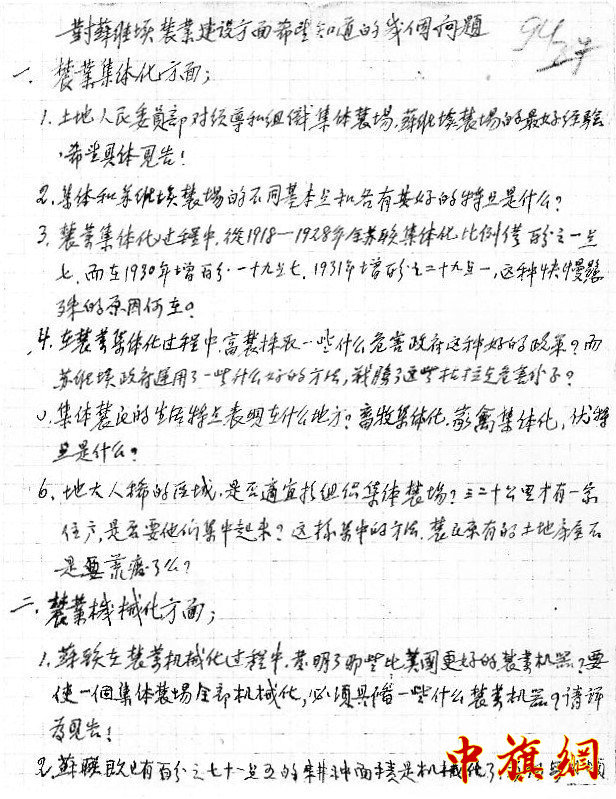 對蘇維埃農業建設方面希望知道的幾個問題
一、農業集体化方面;
1.土地人民委員部对領導和組織集体農場,蘇維埃農場的最好经驗
希望具体見告!
2.集体和苏維埃農場的不同基本点和各有其好的特点是什么?
3.農業集体化过程中,從1918—1928年全苏联集体化比例僅百分之一点
七,而在1930年增百分·一十九点七,1931年增百分之二十九点一,这种快慢懸
殊的原因何在?
4.在農業集体化过程中,富農採取一些什么危害政府这种好的政策?而
苏維埃政府運用了一些什么好的方法,战勝了这些危害分子?
集体農民的生活特点表現在什么地方?畜牧集体化,家禽集体化,优特
点是什么?
6.地大人稀的区域,是否適宜於组织集体農場?三二十公里才有一家
住户,是否要他们集中起来?这樣集中的方法,農民原有的土地房屋不
是要荒廢了么?
二、農業機械化方面;
1.蘇联在農業机械化过程中,發明了那些比美国更好的農業机器?要
使一個集体農場全部机械化,必須具備一些什么農業机器?请詳
為見告!
2.蘇聯既已有百分之七十一点五的耕种面積是机械化了
94
中旗網